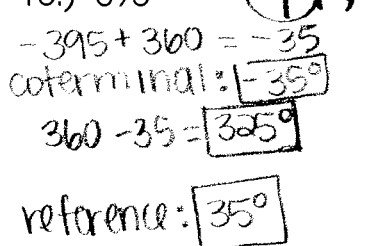 -395 + 360 = -35
coterminal: -35°
360 - 35 = 325°
reference: 35°